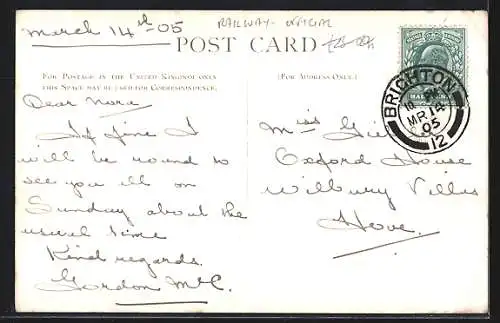 March 14th-05
RAILWAY- OFFICIAL
POST CARD
FOR POSTAGE IN THE UNITED KINGDOM ONLY
THIS SPACE MAY BE USED FOR CORRESPONDENCE.
(FOR ADDRESS ONLY.)
Dear Nora
If fine I
will be round to
see you all on
Sunday about the
usual time
Kind regards.
Gordon McC.
Miss
Oxford House
Wilbury Villas
Hove.
BRIGHTON
MR 14
05
12